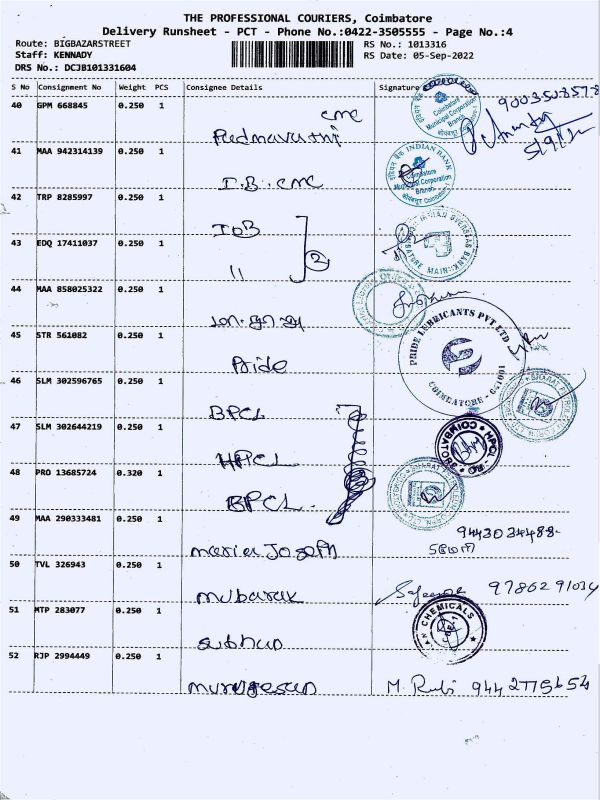 THE PROFESSIONAL COURIERS, Coimbatore
Delivery Runsheet - PCT - Phone No.:0422-3505555 - Page No.:4
Route: BIGBAZARSTREET
Staff: KENNADY
DRS No.: DCJB101331604
RS No.: 1013316
RS Date: 05-Sep-2022
S No Consignment No Weight PCS Consignee Details Signature
40 GPM 668845 0.250 1 CMC
9003508578
5/9/22
Coimbatore Municipal Corporation Branch
41 MAA 942314139 0.250 1 I.B. CMC
INDIAN BANK Coimbatore Municipal Corporation Branch
42 TRP 8285997 0.250 1 IOB
43 EDQ 17411037 0.250 1 11
2
INDIAN OVERSEAS BANK COIMBATORE MAIN
44 MAA 858025322 0.250 1
45 STR 561082 0.250 1 Pride
PRIDE LUBRICANTS PVT LTD COIMBATORE - 641001
46 SLM 302596765 0.250 1 BPCL
47 SLM 302644219 0.250 1 HPCL
HPCL RO COIMBATORE
48 PRO 13685724 0.320 1 BPCL
49 MAA 290333481 0.250 1 maria Joseph
9443034488
50 TVL 326943 0.250 1 mubarak
51 MTP 283077 0.250 1
CHEMICALS
52 RJP 2994449 0.250 1 murugesan
M. Rubi 9442775654